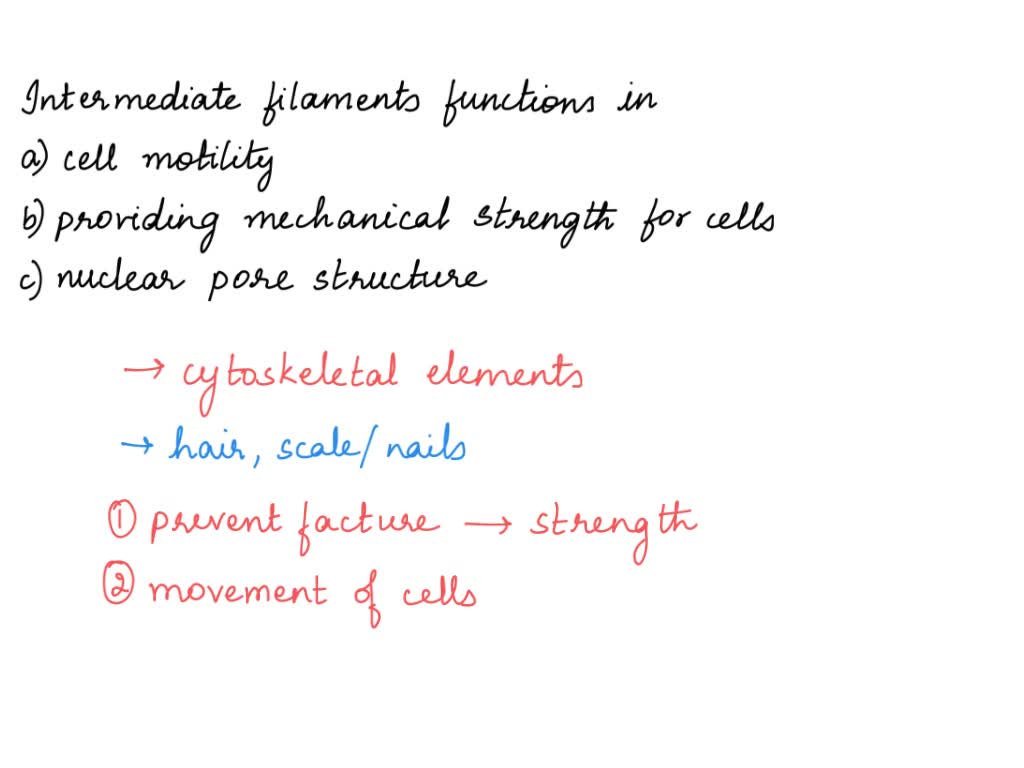 Intermediate filaments functions in
a) cell motility
b) providing mechanical strength for cells
c) nuclear pore structure
→ cytoskeletal elements
→ hair, scale/nails
① prevent facture → strength
② movement of cells